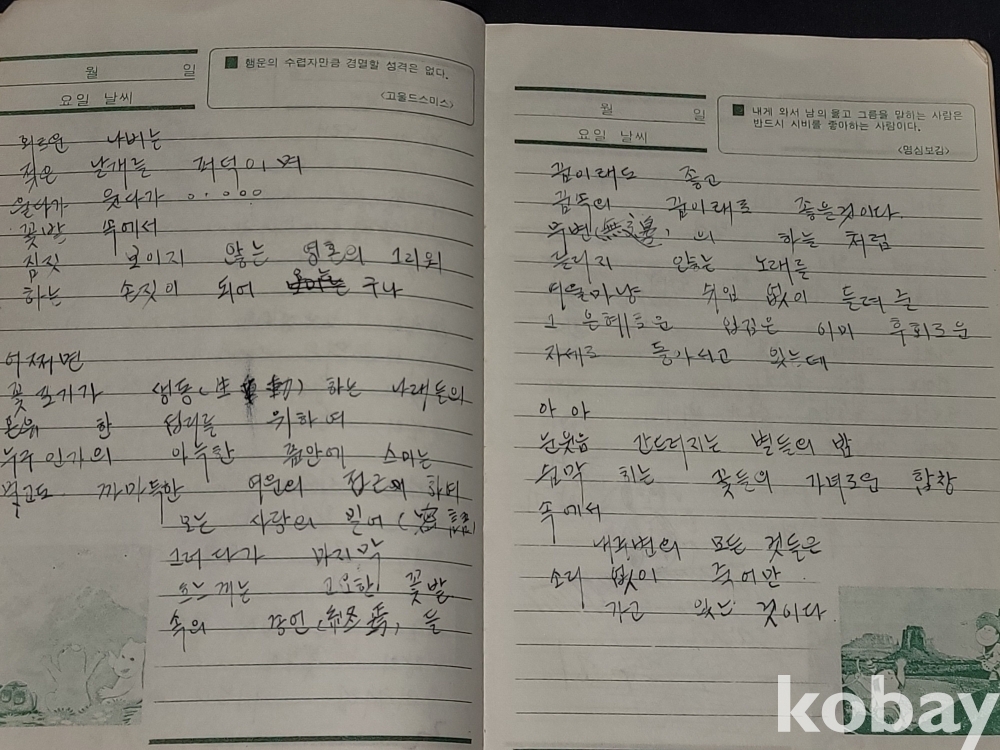 월 일
요일 날씨
행운의 수렵자만큼 경멸할 성격은 없다.
<고울드스미스>
외로운 나비는
젖은 날개를 퍼덕이며
웃다가
꽃밭 속에서
짐짓 보이지 않는 영혼의 그리워
하는 손짓이 되어 구나
어쩌면
꽃포기가 생동(生動)하는 나래들의
한 섭리를 위하여
누구인가의 아늑한 품안에 스미는
멀고도 까마득한 여원의 접근에 하여
모든 사랑의 밀어(密語)
그러다가 마지막
흐느끼는 고요한 꽃밭
속의 종언(終焉)을
월 일
요일 날씨
내게 와서 남의 옳고 그름을 말하는 사람은
반드시 시비를 좋아하는 사람이다.
<명심보감>
꿈이래도 좋고
꿈속의 꿈이래도 좋은것이다
무변(無邊)의 하늘 처럼
들리지 않는 노래를
여울마냥 쉬임 없이 들려 준
그 은혜로운 입김은 이미 후회로운
자세로 돌아서고 있는데
아 아
눈웃음 간드러지는 별들의 밤
취는 꽃들의 가녀로운 합창
속에서
내주변의 모든 것들은
소리 없이 죽어만
가고 있는 것이다
kobay